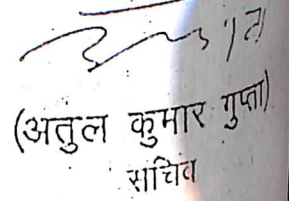 (अतुल कुमार गुप्ता)
सचिव